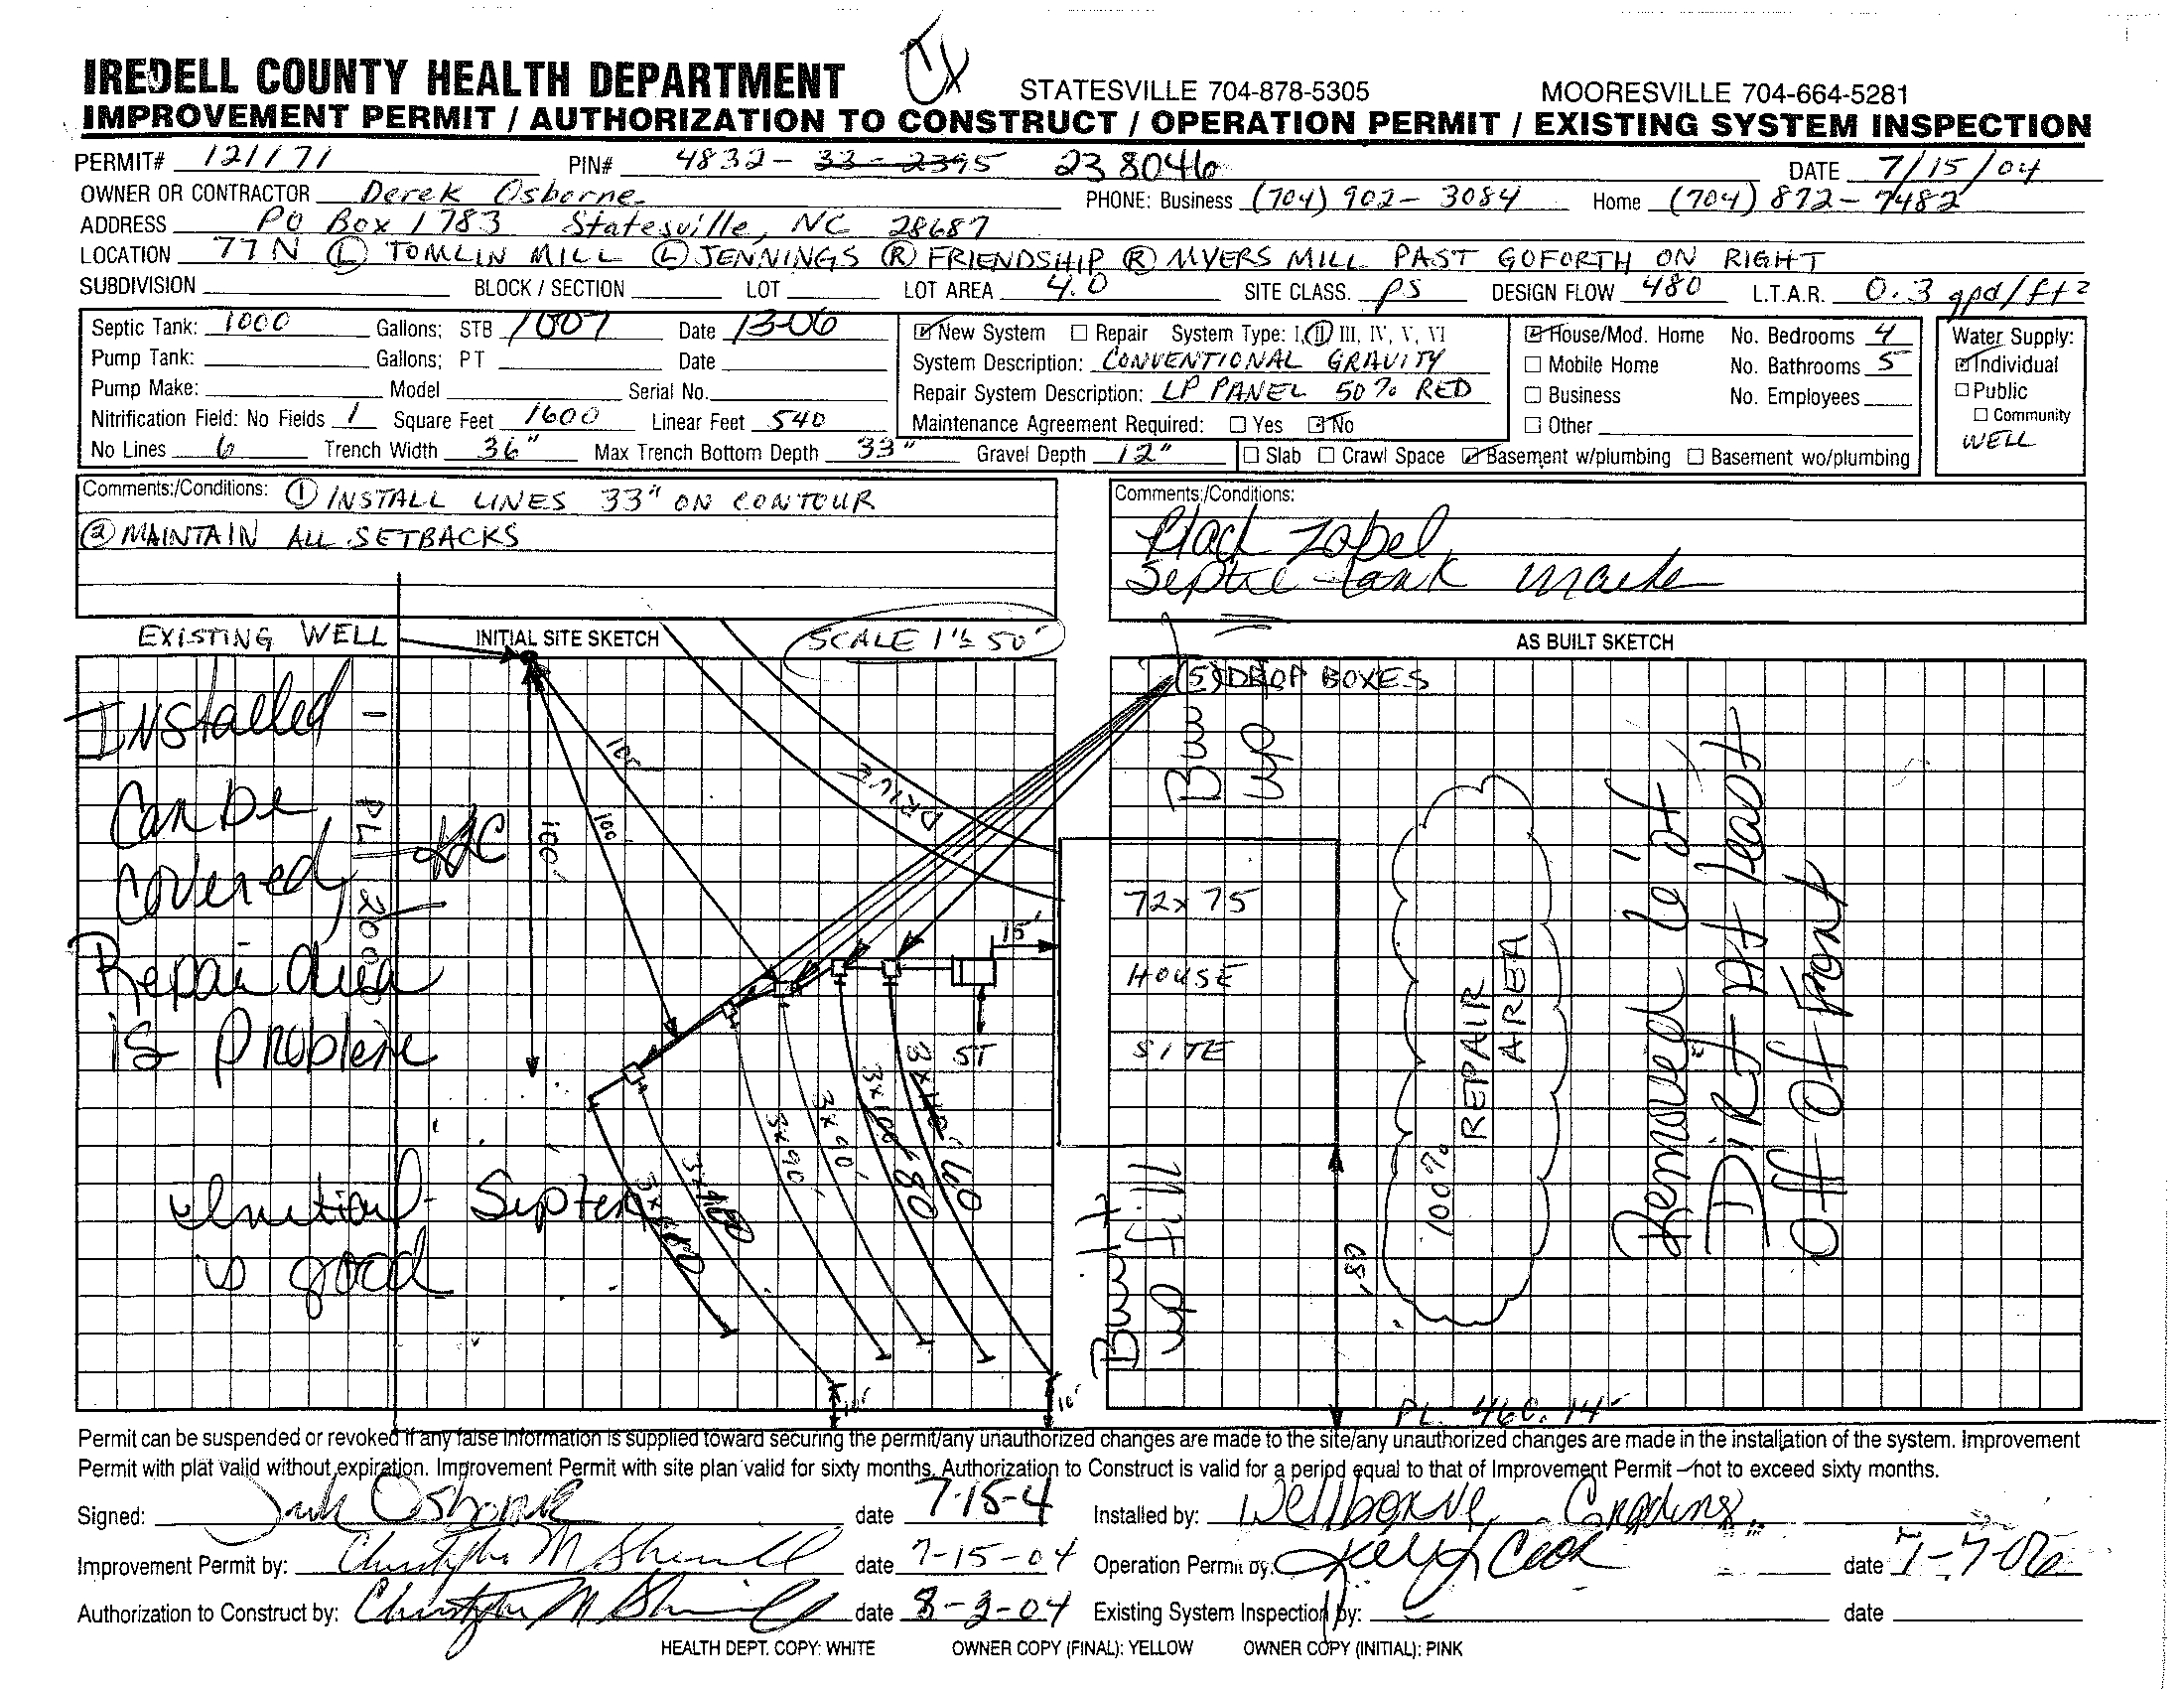 IREDELL COUNTY HEALTH DEPARTMENT
STATESVILLE 704-878-5305 MOORESVILLE 704-664-5281
IMPROVEMENT PERMIT / AUTHORIZATION TO CONSTRUCT / OPERATION PERMIT / EXISTING SYSTEM INSPECTION
PERMIT# 121171 PIN# 4832-33-2395 238046 DATE 7/15/04
OWNER OR CONTRACTOR Derek Osborne PHONE: Business (704) 902-3084 Home (704) 872-7482
ADDRESS PO Box 1783 Statesville, NC 28687
LOCATION 77 N (L) TOMLIN MILL (L) JENNINGS (R) FRIENDSHIP (R) MYERS MILL PAST GOFORTH ON RIGHT
SUBDIVISION BLOCK / SECTION LOT LOT AREA 4.0 SITE CLASS. PS DESIGN FLOW 480 L.T.A.R. 0.3 gpd/ft²
Septic Tank: 1000 Gallons; STB 1007 Date 1-3-06
Pump Tank: Gallons; PT Date
Pump Make: Model Serial No.
Nitrification Field: No Fields 1 Square Feet 1600 Linear Feet 540
No Lines 6 Trench Width 36" Max Trench Bottom Depth 33" Gravel Depth 12"
New System Repair System Type: I, II, III, IV, V, VI
System Description: CONVENTIONAL GRAVITY
Repair System Description: LP PANEL 50% RED
Maintenance Agreement Required: Yes No
House/Mod. Home No. Bedrooms 4
Mobile Home No. Bathrooms 5
Business No. Employees
Other
Slab Crawl Space Basement w/plumbing Basement wo/plumbing
Water Supply:
Individual
Public
Community
WELL
Comments:/Conditions: ① INSTALL LINES 33" ON CONTOUR
② MAINTAIN ALL SETBACKS
Comments:/Conditions:
Septic tank
EXISTING WELL INITIAL SITE SKETCH SCALE 1"=50'
AS BUILT SKETCH
Installed -
Can be
covered
Repair Area
is Probleme
Septem
is good
PL
100'
100'
100'
DRIVE
15'
ST
3x90'
3x90'
80
60
10'
10'
(5) DROP BOXES
72x75
HOUSE
SITE
80'
100%
REPAIR
AREA
Removed
Dirt At Least
Off of Front
PL 460.14'
Permit can be suspended or revoked if any false information is supplied toward securing the permit/any unauthorized changes are made to the site/any unauthorized changes are made in the installation of the system. Improvement
Permit with plat valid without expiration. Improvement Permit with site plan valid for sixty months. Authorization to Construct is valid for a period equal to that of Improvement Permit - not to exceed sixty months.
Signed: Osborne date 7-15-4 Installed by: Wellborne Grading
Improvement Permit by: Christopher M Sherrill date 7-15-04 Operation Permit by: Cook date 7-7-06
Authorization to Construct by: Christopher M Sherrill date 8-3-04 Existing System Inspection by: date
HEALTH DEPT. COPY: WHITE OWNER COPY (FINAL): YELLOW OWNER COPY (INITIAL): PINK